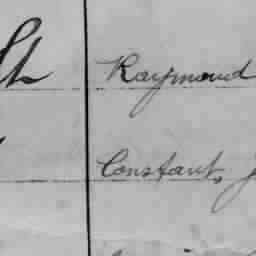 St Raymond
Constant, J